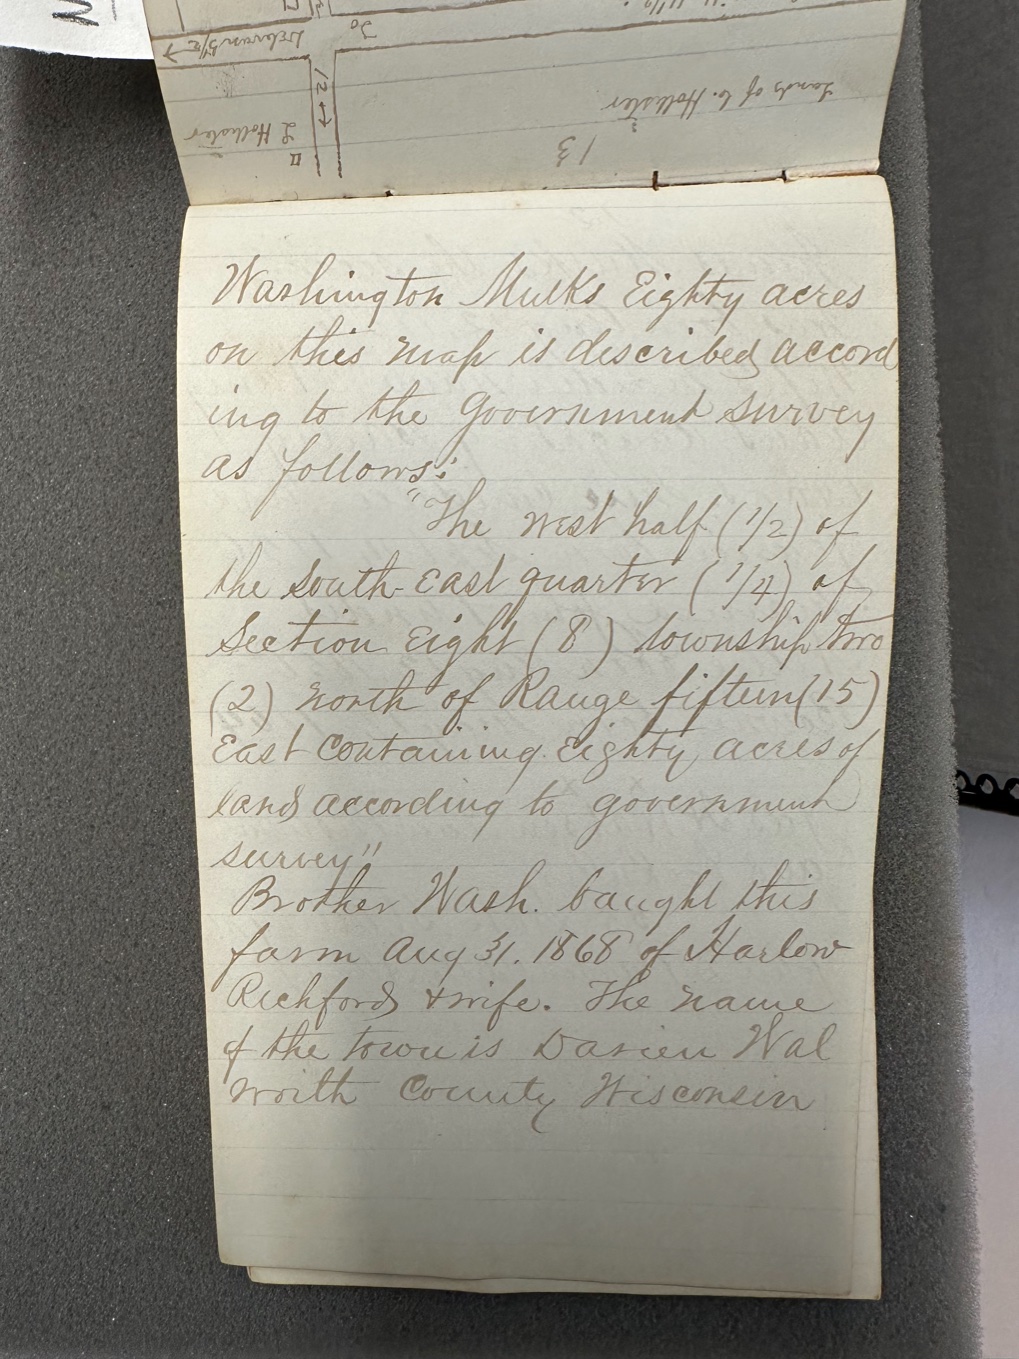 To
Delevan 5/2
12
L Hollister
Lands of C. Hollister
13
Washington Mulks Eighty acres
on this map is described accord
ing to the Government survey
as follows:
"The west half (1/2) of
the South-East quarter (1/4) of
Section Eight (8) township two
(2) north of Range fifteen (15)
East Containing Eighty acres of
land according to government
survey"
Brother Wash. baught this
farm Aug 31. 1868 of Harlow
Richford & wife. The name
of the town is Darien Wal
worth County Wisconsin